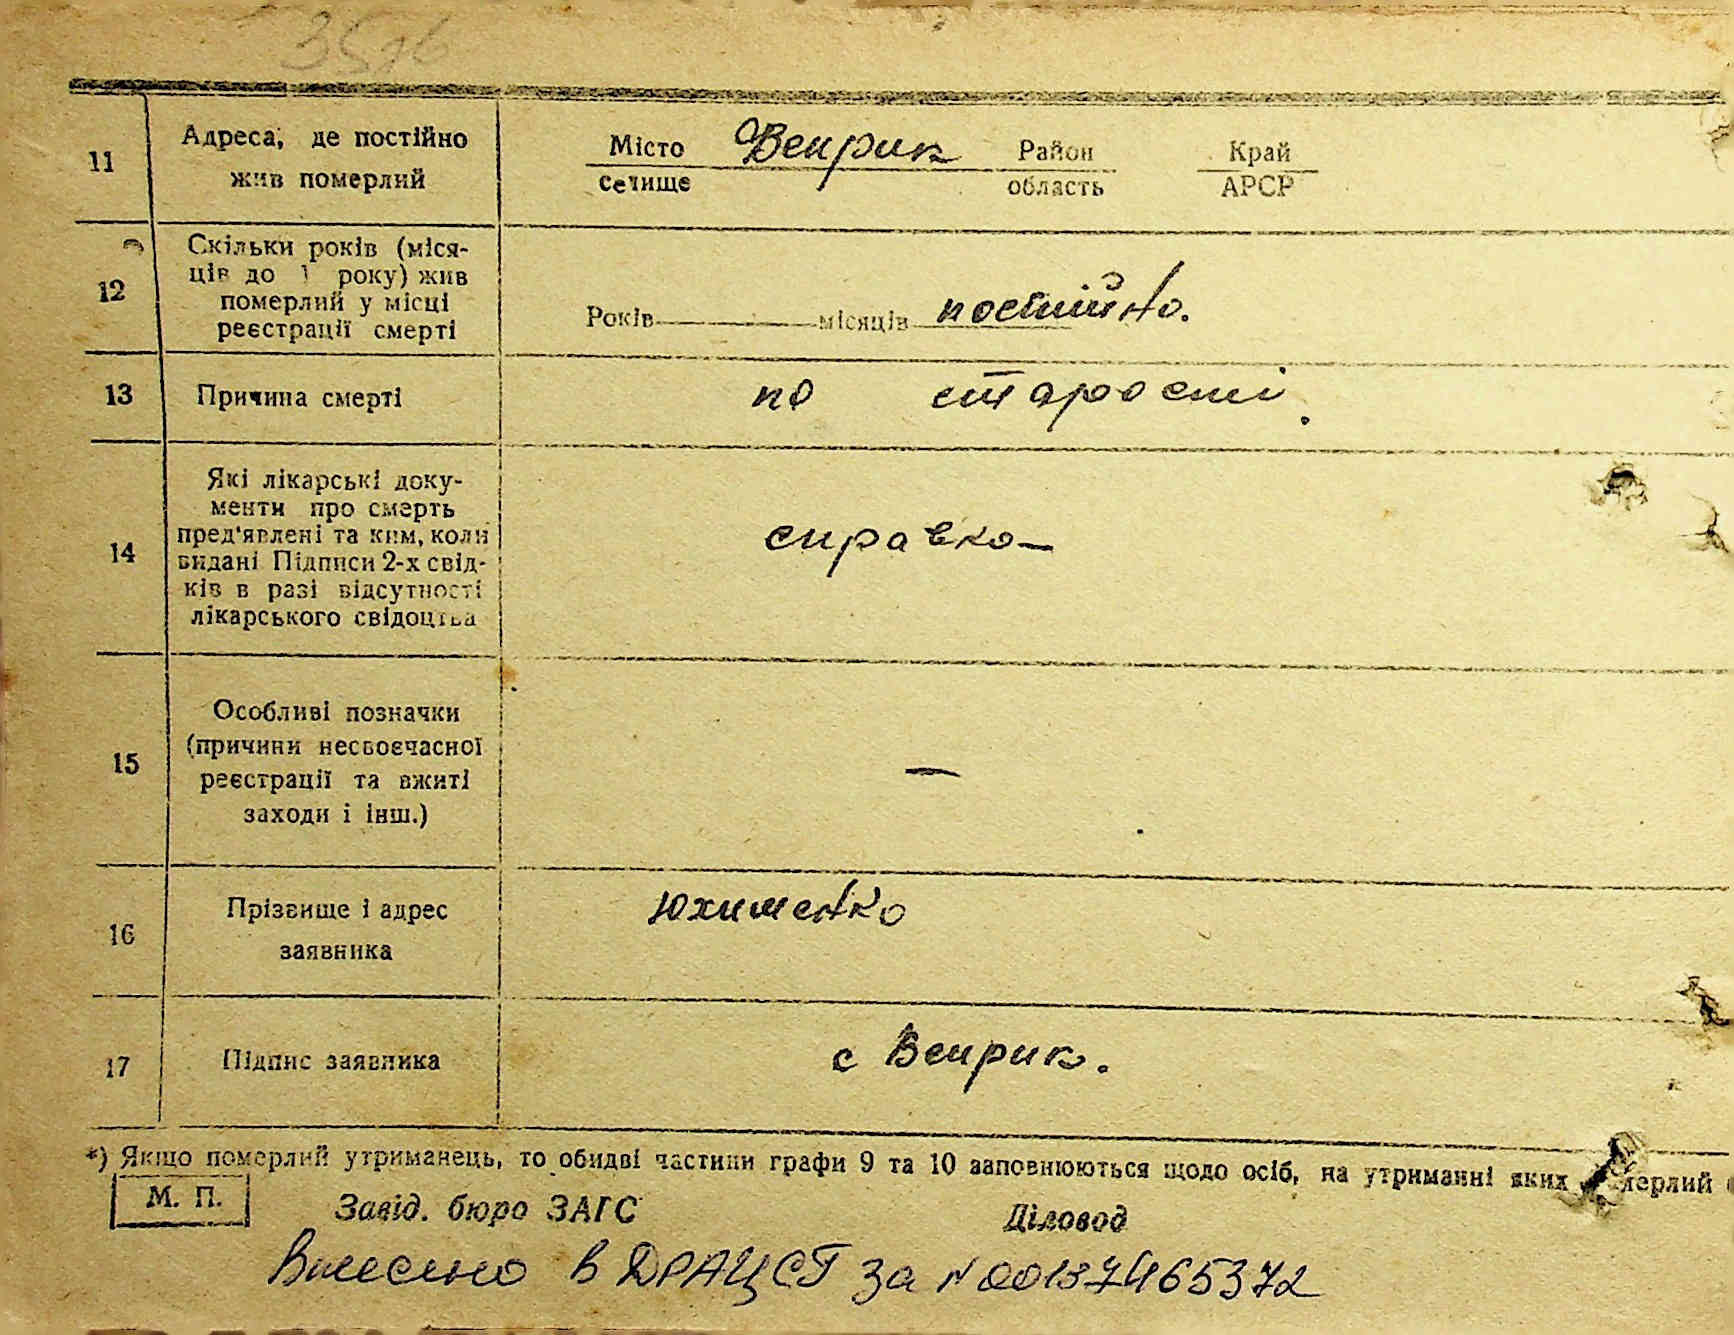 11
Адреса, де постійно
жив померлий
Місто Веприк Район Край
селище область АРСР
12
Скільки років (міся-
ців до 1 року) жив
померлий у місці
реєстрації смерті
Років місяців постійно.
13
Причина смерті
по старості.
14
Які лікарські доку-
менти про смерть
пред'явлені та ким, коли
видані Підписи 2-х свід-
ків в разі відсутності
лікарського свідоцтва
справка
15
Особливі позначки
(причини несвоєчасної
реєстрації та вжиті
заходи і інш.)
—
16
Прізвище і адрес
заявника
Юхименко
17
Підпис заявника
с Веприк.
*) Якщо померлий утриманець, то обидві частини графи 9 та 10 заповнюються щодо осіб, на утриманні яких
М. П.
Завід. бюро ЗАГС Діловод
Внесено в ДРАЦСГ за N 00137465372